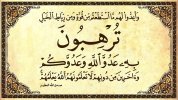 وَأَعِدُّوا لَهُم مَّا اسْتَطَعْتُم مِّن قُوَّةٍ وَمِن رِّبَاطِ الْخَيْلِ
تُرْهِبُونَ
بِهِ عَدُوَّ اللَّهِ وَعَدُوَّكُمْ
وَآخَرِينَ مِن دُونِهِمْ لَا تَعْلَمُونَهُمُ اللَّهُ يَعْلَمُهُمْ